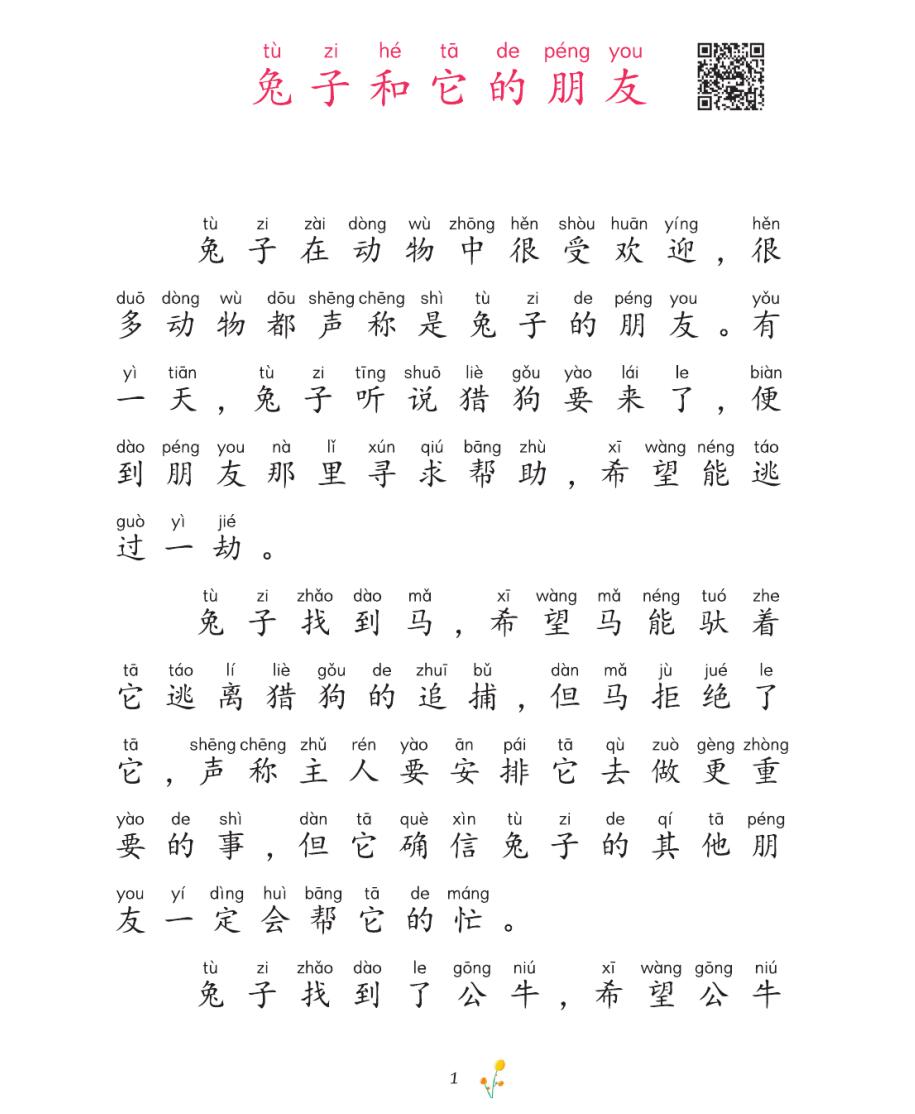 tù zi hé tā de péng you
兔子和它的朋友
tù zi zài dòng wù zhōng hěn shòu huān yíng hěn
兔子在动物中很受欢迎，很
duō dòng wù dōu shēng chēng shì tù zi de péng you yǒu
多动物都声称是兔子的朋友。有
yì tiān tù zi tīng shuō liè gǒu yào lái le biàn
一天，兔子听说猎狗要来了，便
dào péng you nà lǐ xún qiú bāng zhù xī wàng néng táo
到朋友那里寻求帮助，希望能逃
guò yì jié
过一劫。
tù zi zhǎo dào mǎ xī wàng mǎ néng tuó zhe
兔子找到马，希望马能驮着
tā táo lí liè gǒu de zhuī bǔ dàn mǎ jù jué le
它逃离猎狗的追捕，但马拒绝了
tā shēng chēng zhǔ rén yào ān pái tā qù zuò gèng zhòng
它，声称主人要安排它去做更重
yào de shì dàn tā què xìn tù zi de qí tā péng
要的事，但它确信兔子的其他朋
you yí dìng huì bāng tā de máng
友一定会帮它的忙。
tù zi zhǎo dào le gōng niú xī wàng gōng niú
兔子找到了公牛，希望公牛
1